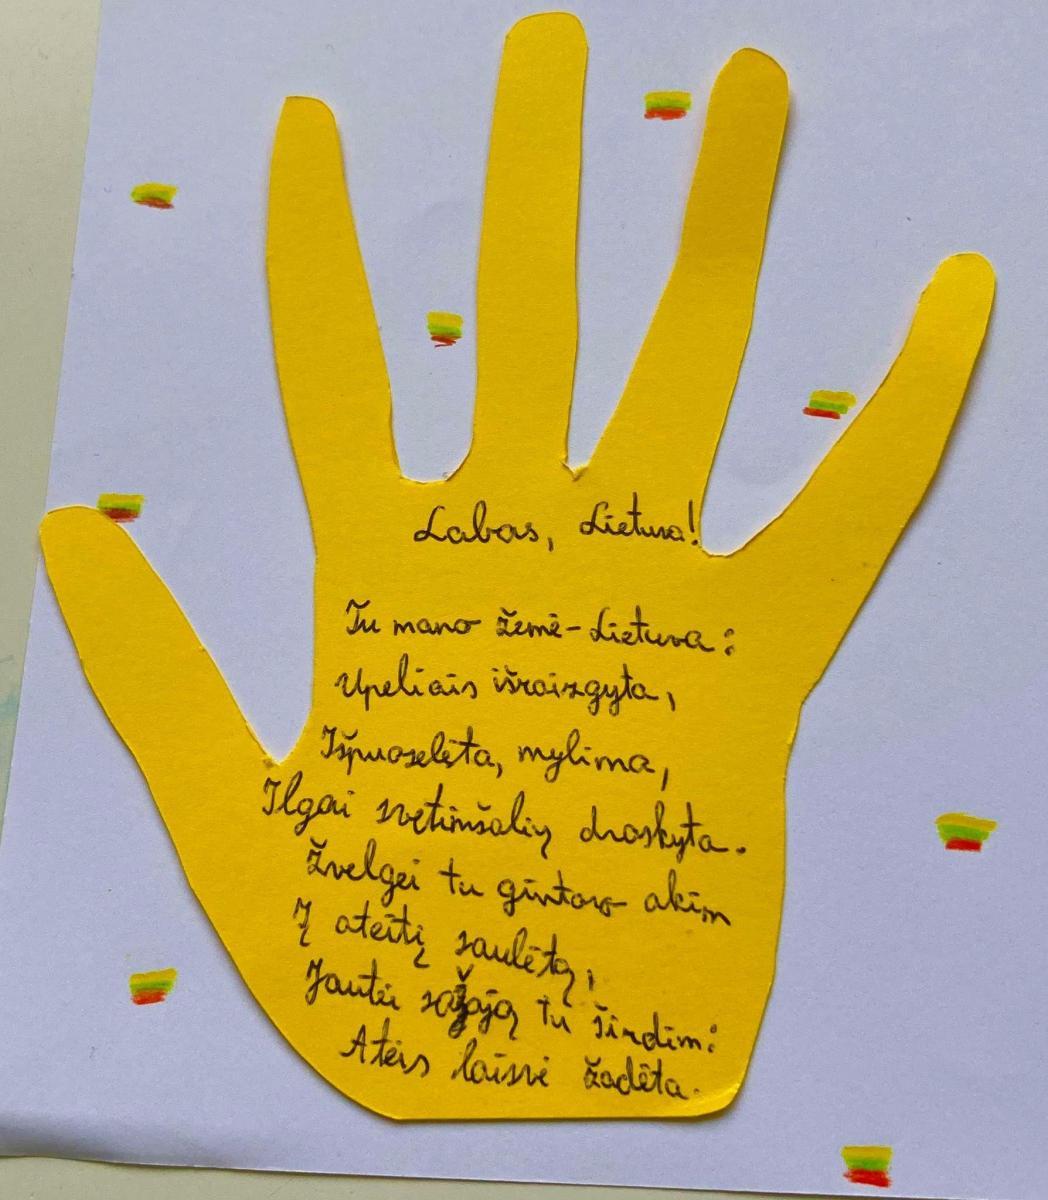 Labas, Lietuva!
Tu mano žemė-Lietuva:
Upeliais išraizgyta,
Išpuoselėta, mylima,
Ilgai svetimšalių draskyta.
Žvelgei tu gintaro akim
Į ateitį saulėtą,
Jautei sąžają tu širdim:
Ateis laisvė žadėta.